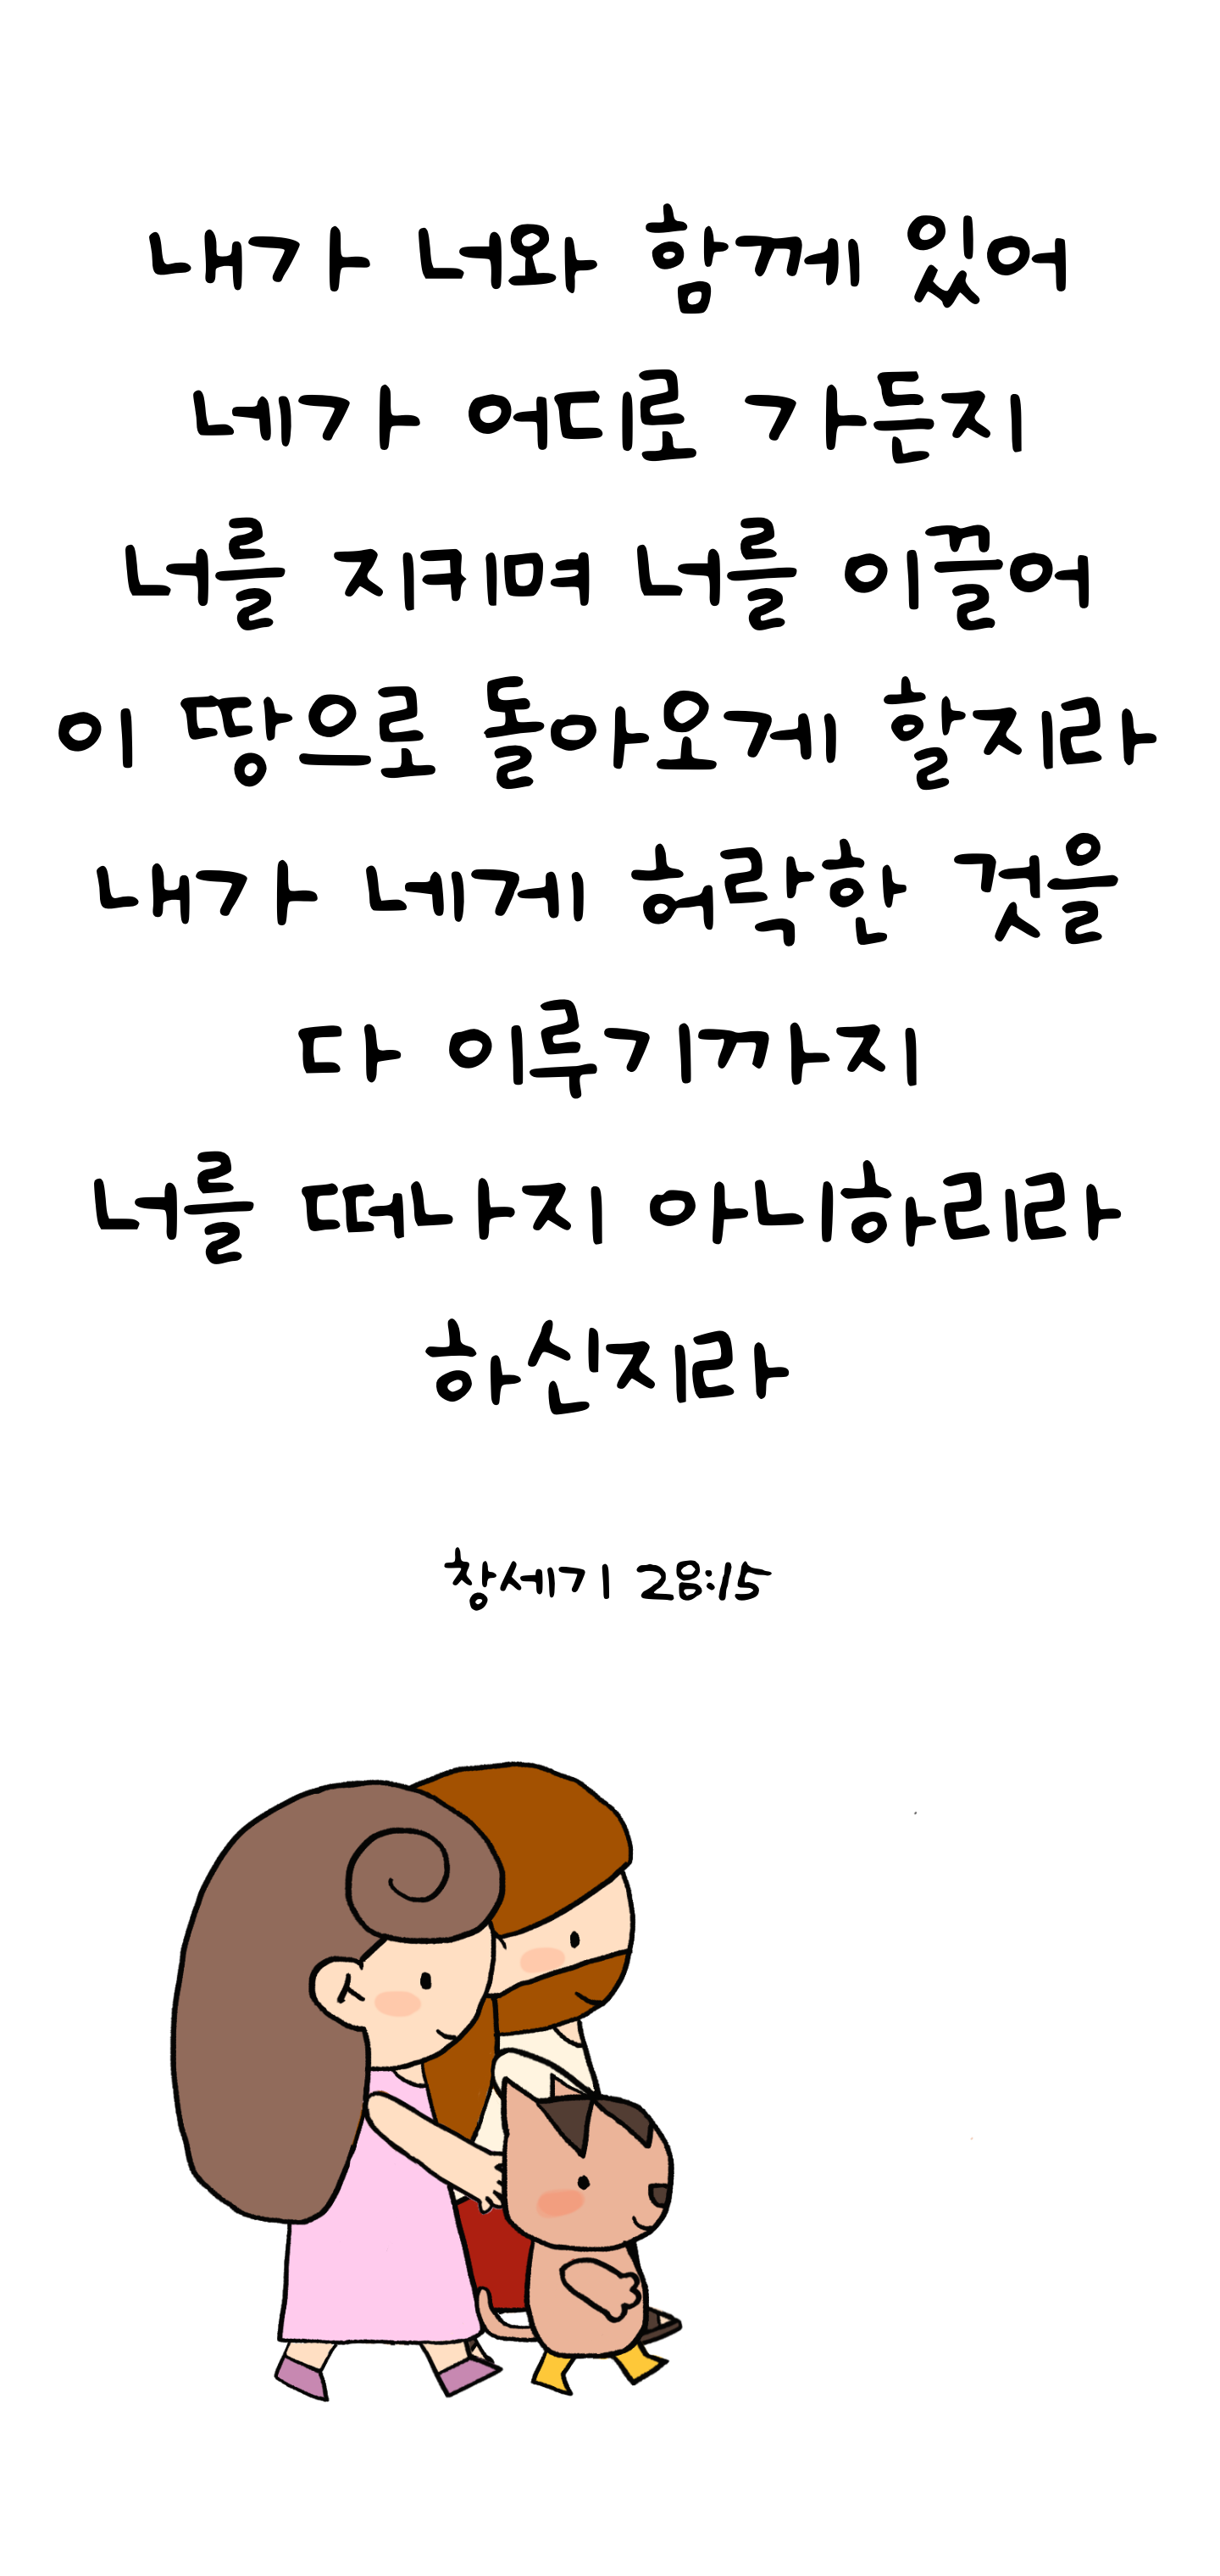 내가 너와 함께 있어
네가 어디로 가든지
너를 지키며 너를 이끌어
이 땅으로 돌아오게 할지라
내가 네게 허락한 것을
다 이루기까지
너를 떠나지 아니하리라
하신지라
창세기 28:15